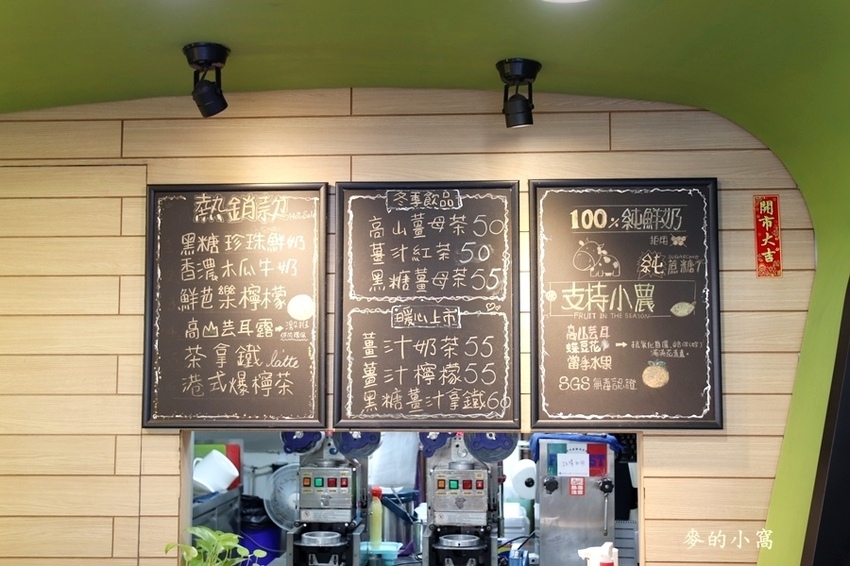 熱銷款
黑糖珍珠鮮奶
香濃木瓜牛奶
鮮芭樂檸檬
高山芸耳露→
茶拿鐵latte
港式爆檸茶
冬季飲品
高山薑母茶50
薑汁紅茶50
黑糖薑母茶55
暖心上市
薑汁奶茶55
薑汁檸檬55
黑糖薑汁拿鐵60
100%純鮮奶
使用
SUGARCANE
純蔗糖
支持小農
FRUIT IN THE SEASON
高山芸耳
蝶豆花
當季水果
SGS無毒認證
開市大吉
麥的小窩